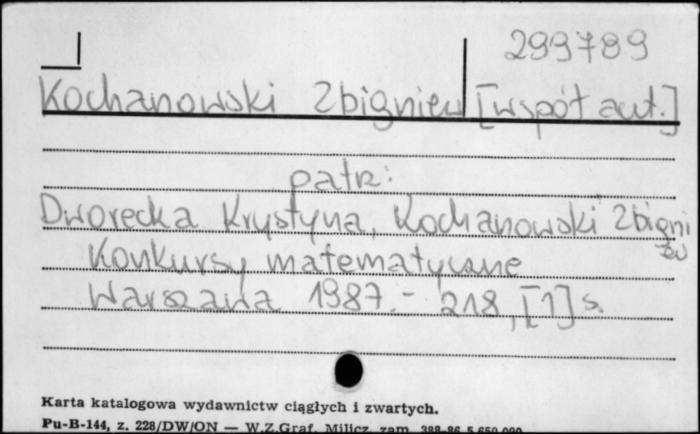 299789
Kochanowski Zbigniew [współ aut.]
patrz:
Dworecka Krystyna, Kochanowski Zbigniew
Konkursy matematyczne
Warszawa 1987.- 218, [1] s.
Karta katalogowa wydawnictw ciągłych i zwartych.
Pu-B-144, z. 228/DW/ON — W.Z.Graf. Milicz, zam. 388-86 5.650.000